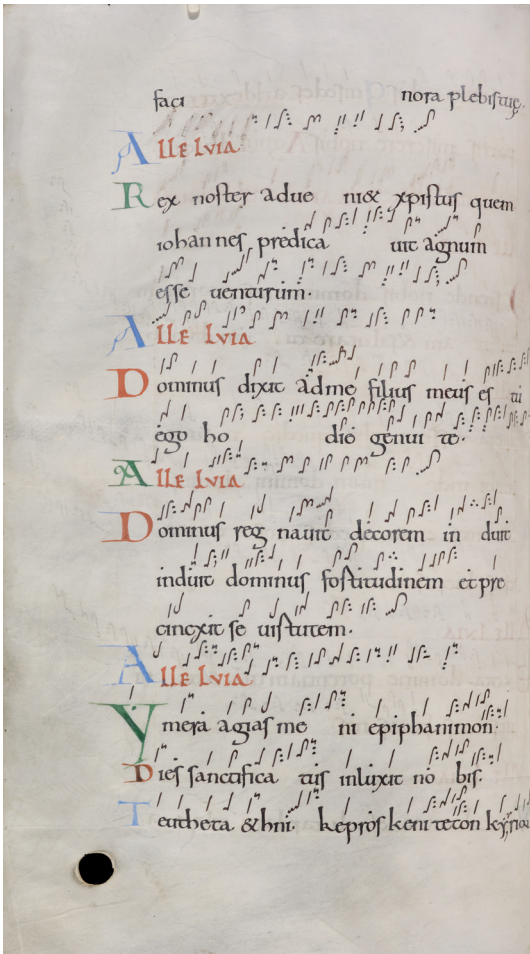 faci nora plebis tuę.
ALLELVIA
Rex noster adue ni& xpistus quem
iohannes predica uit agnum
esse uenturum.
ALLELVIA
Dominus dixit ad me filius meus es tu
ego ho die genui te.
ALLELVIA
Dominus reg nauit decorem in duit
induit dominus fortitudinem et pre
cinexit se uirtutem.
ALLELVIA
Ymera agias me ni epiphanimon.
Dies sanctifica tus inluxit no bis.
Teutheta &hni. kepros keni teton